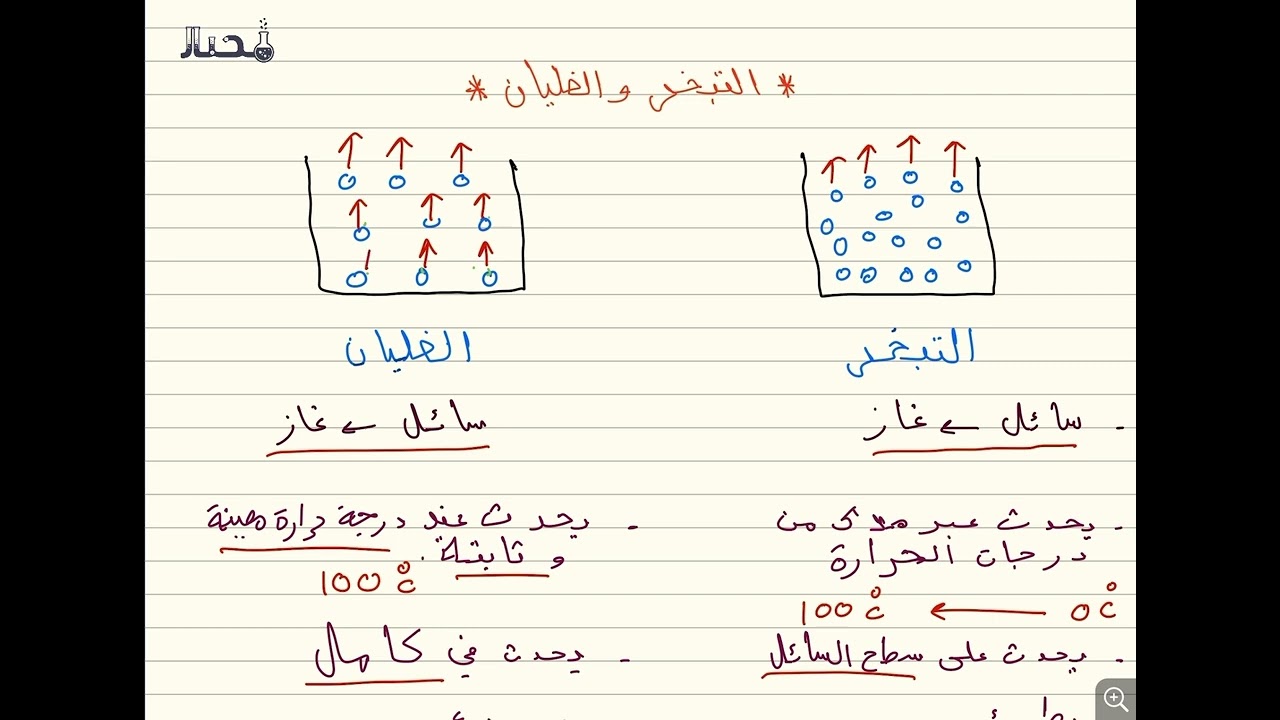 مخبار
* التبخر والغليان *
التبخر
سائل ← غاز -
- يحدث عبر مدى من
درجات الحرارة
0°C ← 100°C
- يحدث على سطح السائل
الغليان
سائل ← غاز
- يحدث عند درجة حرارة معينة
و ثابتة.
100°C
- يحدث في كامل